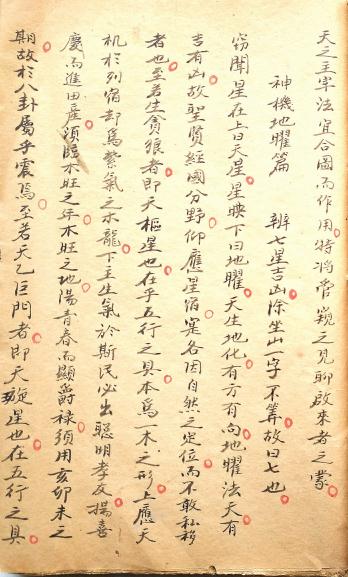 天之主宰法宜合圖而作用特將管窺之見聊啟來者之蒙
神機地曜篇 辨七星吉凶除坐山一字不算故曰七也
竊聞星在上曰天星星映下曰地曜天生地化有方有向地曜法天有
吉有凶故聖賢經國分野仰應星宿寔各因自然之定位而不敢私移
者也至若生貪狼者即天樞星也在乎五行之具本為一木之形上應天
机於列宿却為繫氣之水龍下主生氣於斯民必出聰明孝友揚喜
慶而進田產須臨木旺之年木旺之地湯青春而顯爵祿須用亥卯未之
期故於八卦屬乎震焉至若天乙巨門者即天旋星也在五行之具